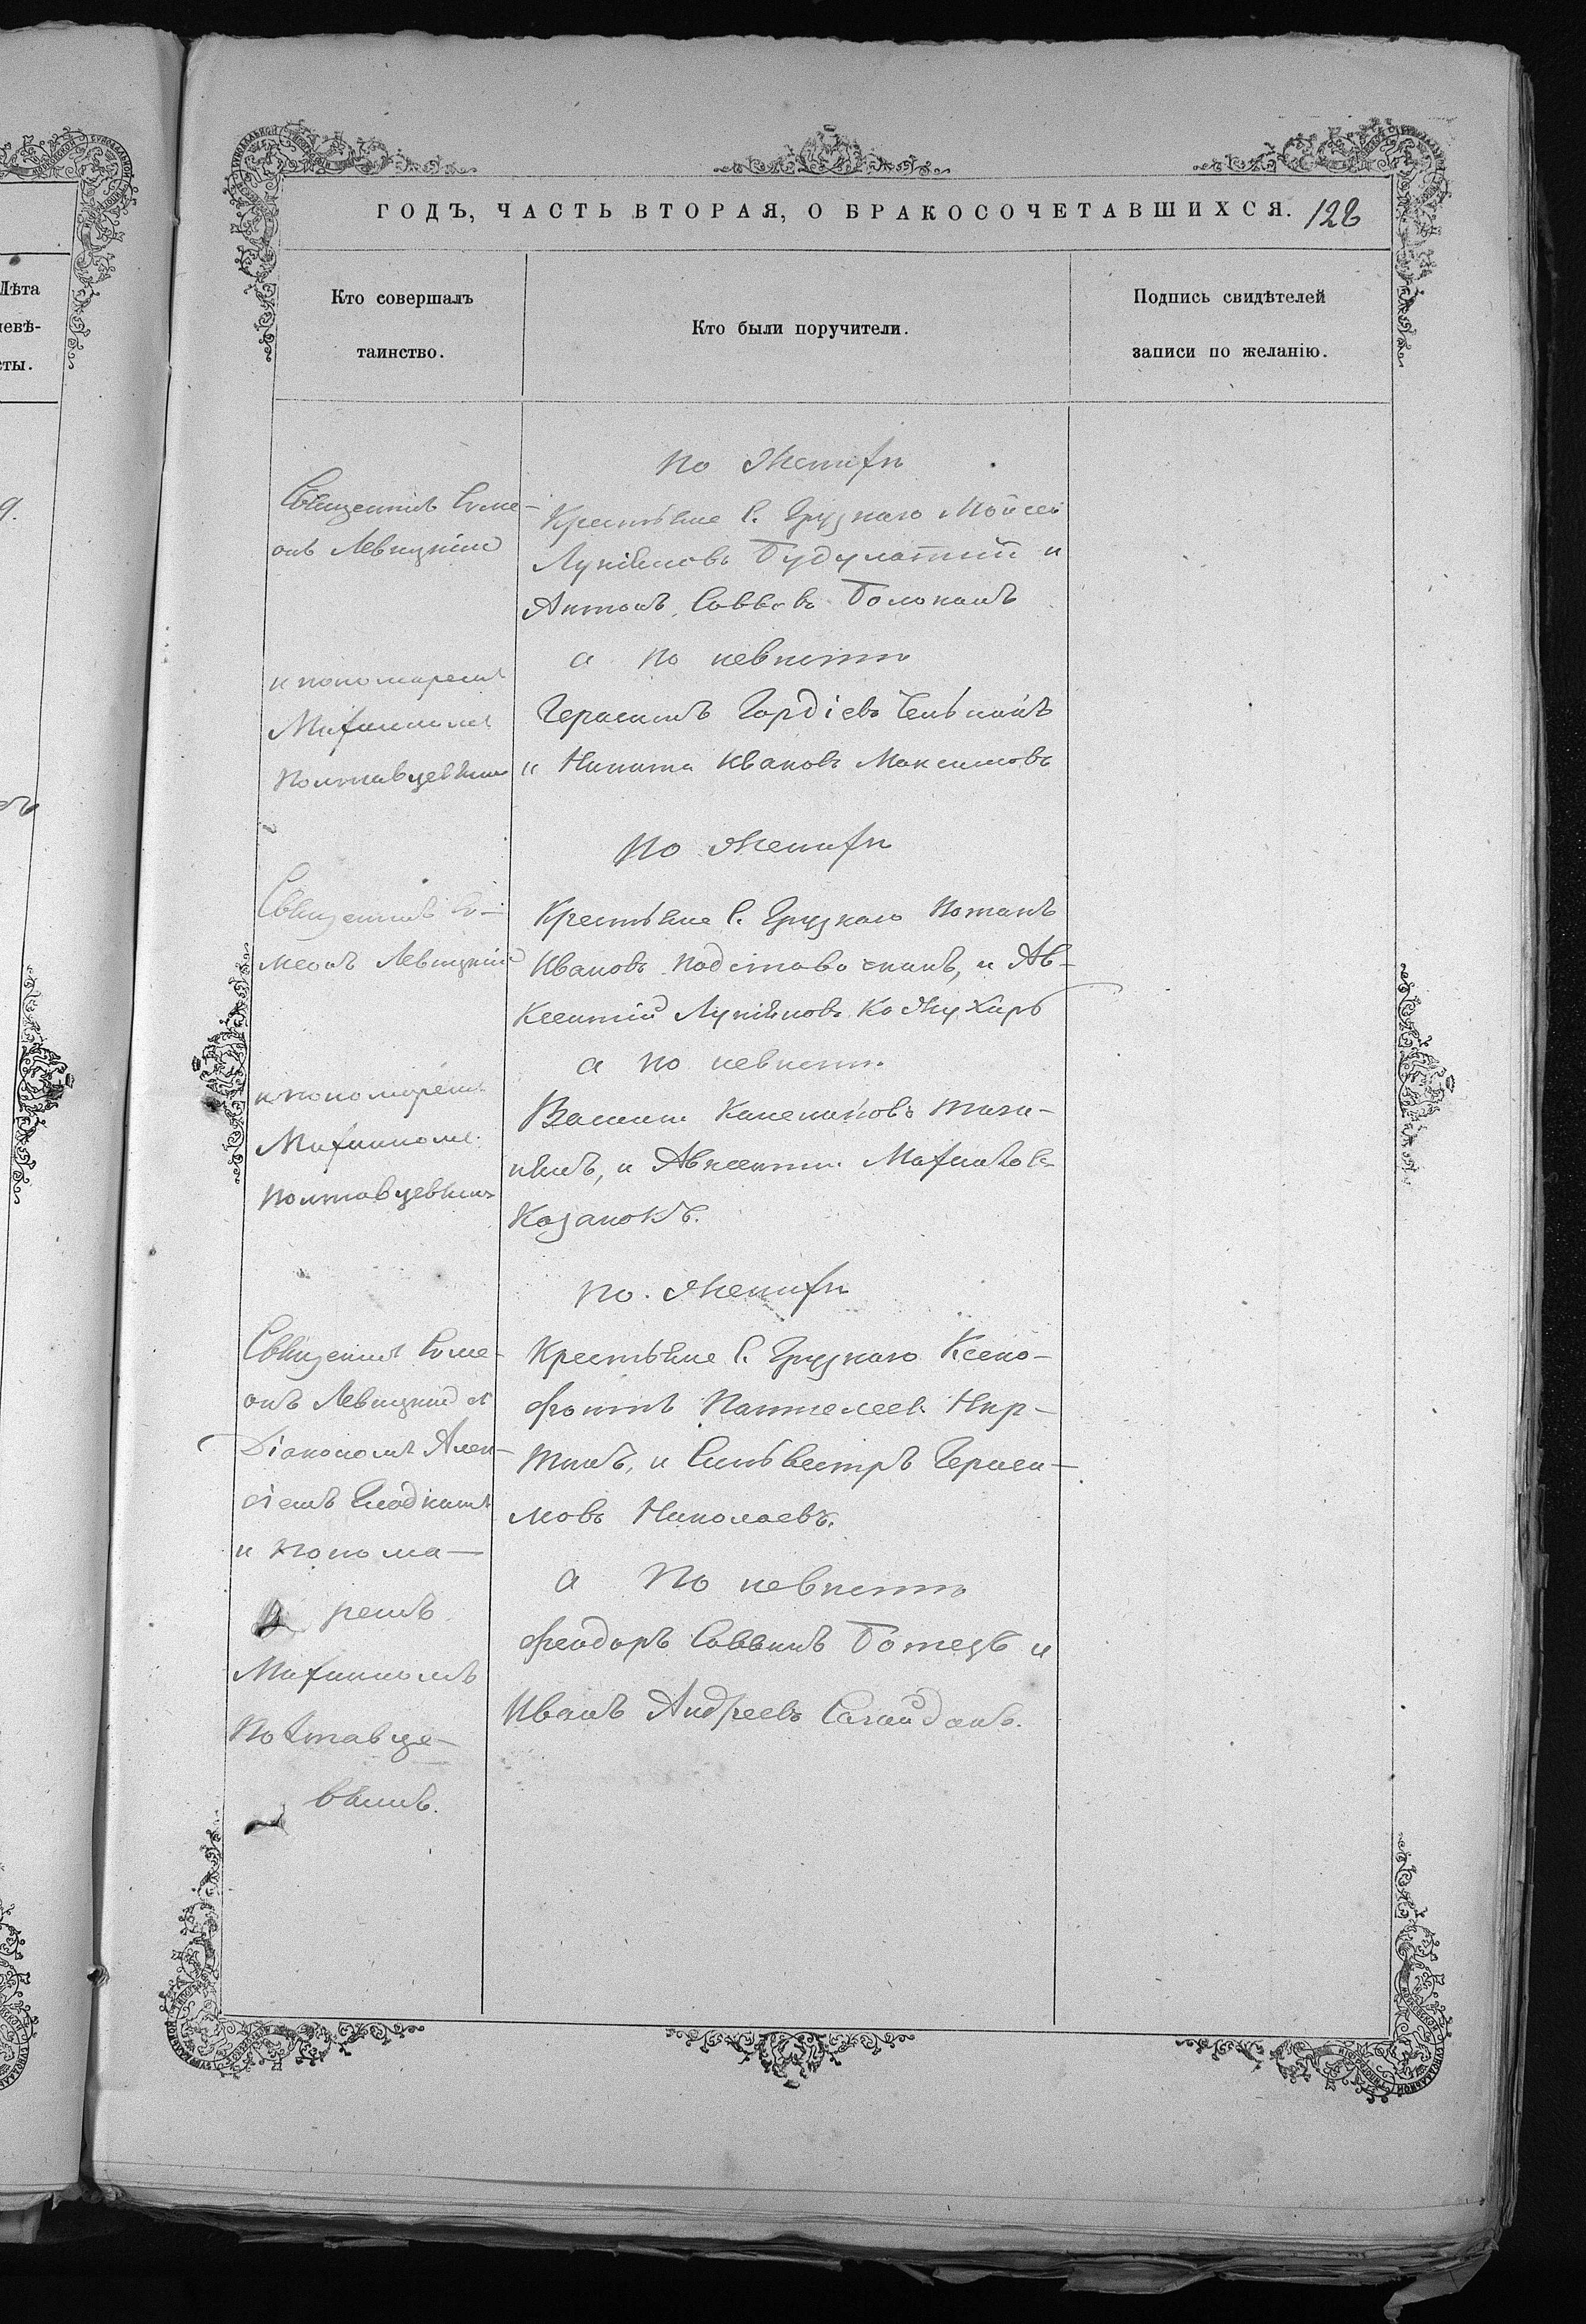 Лѣта
невѣ-
сты.
9.
ГОДЪ, ЧАСТЬ ВТОРАЯ, О БРАКОСОЧЕТАВШИХСЯ. 128
Кто совершалъ
таинство.
Кто были поручители.
Подпись свидѣтелей
записи по желанію.
Священникъ Симе-
онъ Левицкій
и пономаремъ
Митрофаномъ
Полтавцевымъ
по женихѣ
Крестьяне С. Грузкаго Моисей
Лукіяновъ и
Антонъ Саввовъ Болоканъ
а по невѣстѣ
Герасимъ Гордіевъ
и Никита Ивановъ Максимовъ
Священникъ Си-
меонъ Левицкій
и пономаремъ
Полтавцевымъ
по женихѣ
Крестьяне С. Грузкаго Потапъ
Ивановъ и Ав-
ксентій Лукіяновъ Кожухарь
а по невѣстѣ
и Авксентій
Козанокъ.
Священникъ Симе-
онъ Левицкій съ
Діакономъ Алек-
сіемъ Гладкимъ
и понома-
ремъ
Полтавце-
вымъ.
по женихѣ
Крестьяне С. Грузкаго Ксено-
фонтъ Пантелеев Кир-
и Сильвестръ Гераси-
мовъ Николаевъ.
а по невѣстѣ
Феодоръ Саввинъ Ботезъ и
Иванъ Андреевъ Сагайданъ.